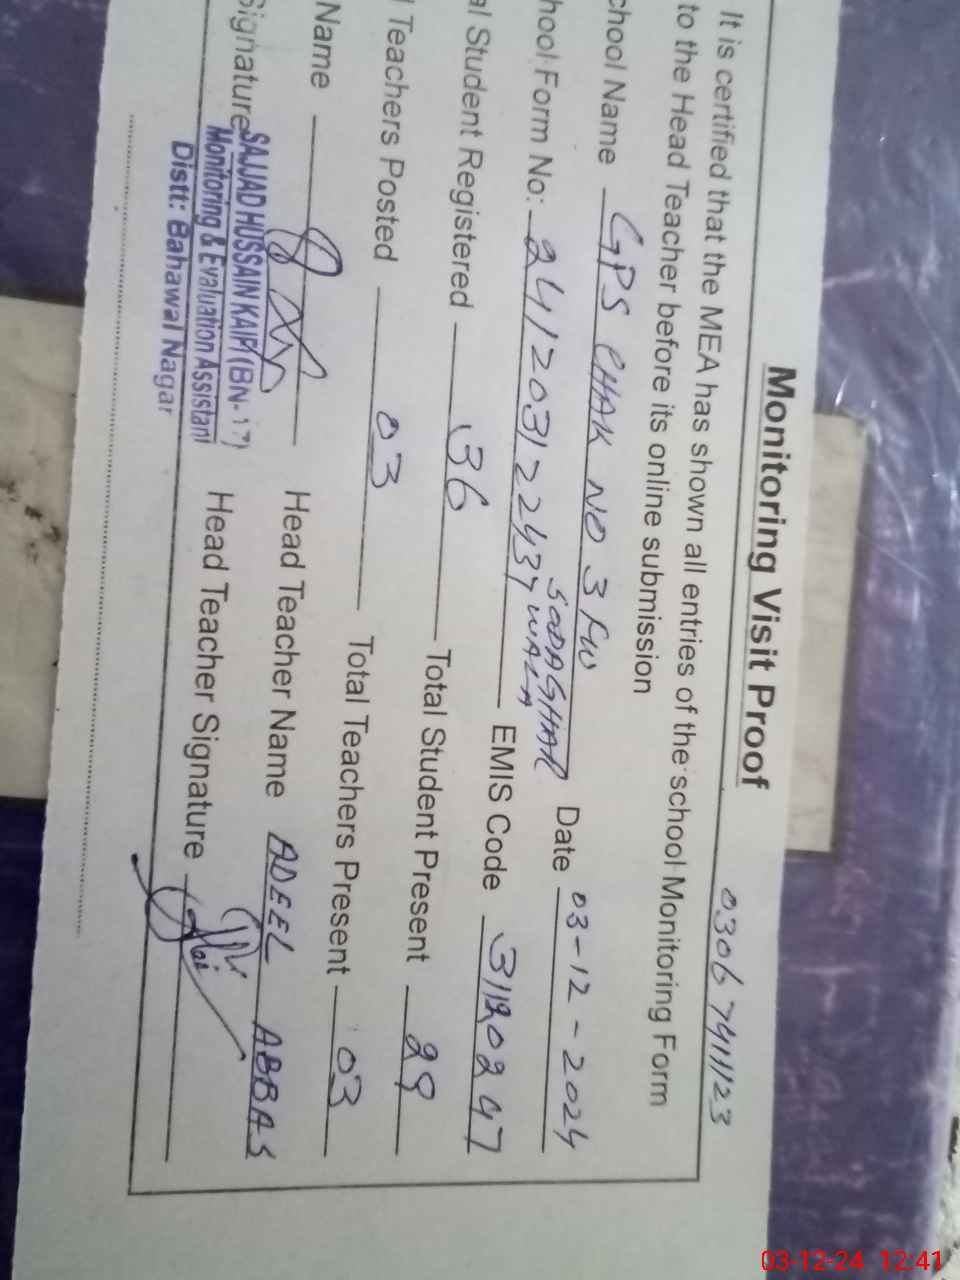 Monitoring Visit Proof
0306 7411123
It is certified that the MEA has shown all entries of the school Monitoring Form
to the Head Teacher before its online submission
chool Name GPS CHAK NO 3 FW Date 03-12-2024
SODAGHAR WALA
hool Form No: 241203122437 EMIS Code 31120247
al Student Registered 36 Total Student Present 29
l Teachers Posted 03 Total Teachers Present 03
Name Head Teacher Name ADEEL ABBAS
Signature Head Teacher Signature
SAJJAD HUSSAIN KAIF (BN-17)
Monitoring & Evaluation Assistant
Distt: Bahawal Nagar
03-12-24 12:41